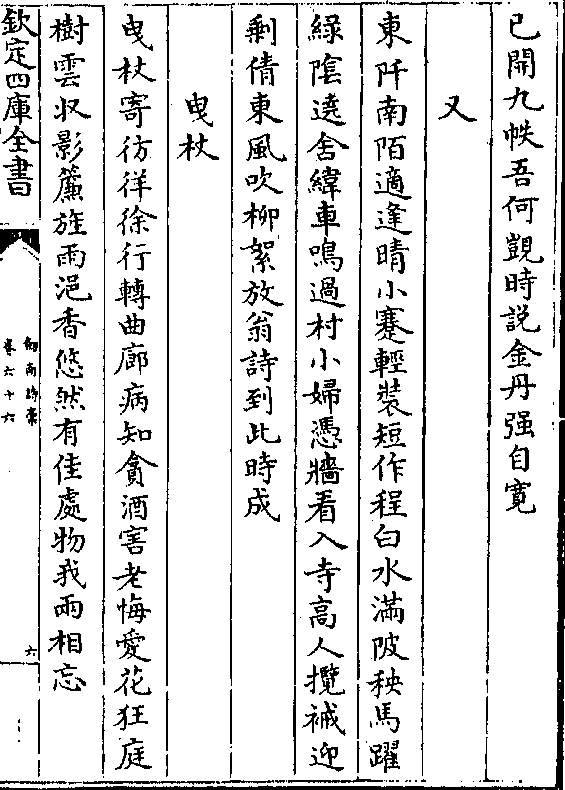 已開九帙吾何覬時説金丹强自寛
又
東阡南陌適逢晴小蹇輕装短作程白水滿陂秧馬躍
綠陰遶舍緯車鳴過村小婦憑牆看入寺高人攬裓迎
剰倩東風吹柳絮放翁詩到此時成
曳杖
曳杖寄彷徉徐行轉曲廊病知貪酒害老悔愛花狂庭
樹雲収影簾旌雨浥香悠然有佳處物我兩相忘
欽定四庫全書
劒南詩槀
卷六十六
六